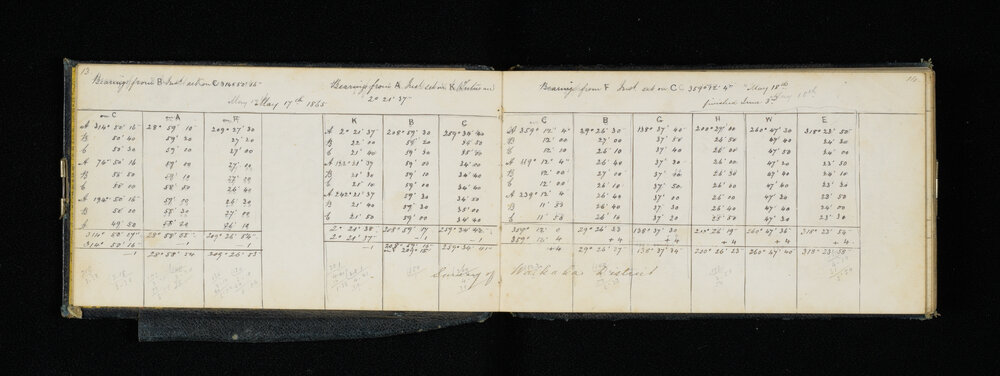 13
Bearing from B Inst set on C 314° 50' 16"
May 17th 1865
C A F
A 314° 50' 16" 28° 59' 10" 209° 27' 30"
B 50' 40 59' 20 27' 20
C 50' 30 59' 00 27' 00
A 76° 50' 16 59' 00 27' 00
B 50' 50 59' 00 27' 10
C 50' 00 58' 50 26' 40
A 194° 50' 16 59' 00 26' 30
B 50' 00 58' 30 27' 00
C 49' 50 58' 20 26' 10
314° 50' 17" 28° 58' 55" 209° 26' 54"
314° 50' 16" —1 —1
—1 28° 58' 54 209° 26' 53"
Bearing from A Inst set on K
2° 21' 37"
K B C
A 2° 21' 37" 208° 59' 30 259° 34' 40
B 22' 00 59' 20 35' 30
C 21' 40 59' 30 35' 20
A 122° 21' 37 59' 00 34' 00
B 21' 30 59' 10 34' 00
C 21' 10 59' 00 34' 40
A 242° 21' 37 59' 00 34' 30
B 21' 40 59' 30 35' 00
C 21' 50 59' 00 34' 40
2° 21' 38 208° 59' 17 259° 34' 42
2° 21' 37" —1 —1
—1 208° 59' 16" 259° 34' 41"
14
Bearing from F Inst set on C 359° 12' 4" May 18th
finished June 3rd
C B G H W E
A 359° 12' 4" 29° 26' 30 138° 37' 40 200° 27' 00 260° 47' 30 318° 23' 50"
B 12' 00 26' 40 37' 30 26' 50 47' 40 24' 30
C 12' 10 26' 10 37' 40 26' 40 47' 50 24' 00
A 119° 12' 4" 26' 40 37' 30 26' 00 47' 20 23' 50
B 12' 00 27' 00 37' 26' 30 47' 30 24' 10
C 12' 00 26' 10 37' 50 26' 00 47' 40 23' 50
A 239° 12' 4 26' 10 37' 30 26' 40 47' 40 23' 30
B 11' 50 26' 40 37' 00 26' 40 47' 40 24' 00
C 11' 50 26' 10 37' 30 26' 00 47' 50 23' 30
359° 12' 0 29° 26' 23 138° 37' 30 200° 26' 19 260° 47' 36 318° 23' 54
359° 12' 4 +4 +4 +4 +4 +4
+4 29° 26' 27" 138° 37' 34 200° 26' 23 260° 47' 40 318° 23' 58"
Survey of Waikaka District